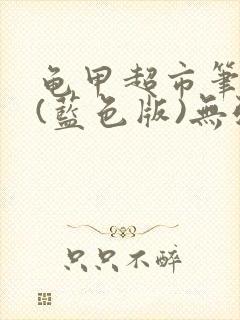 龟甲超市筆
(藍色版)無
只只不醉